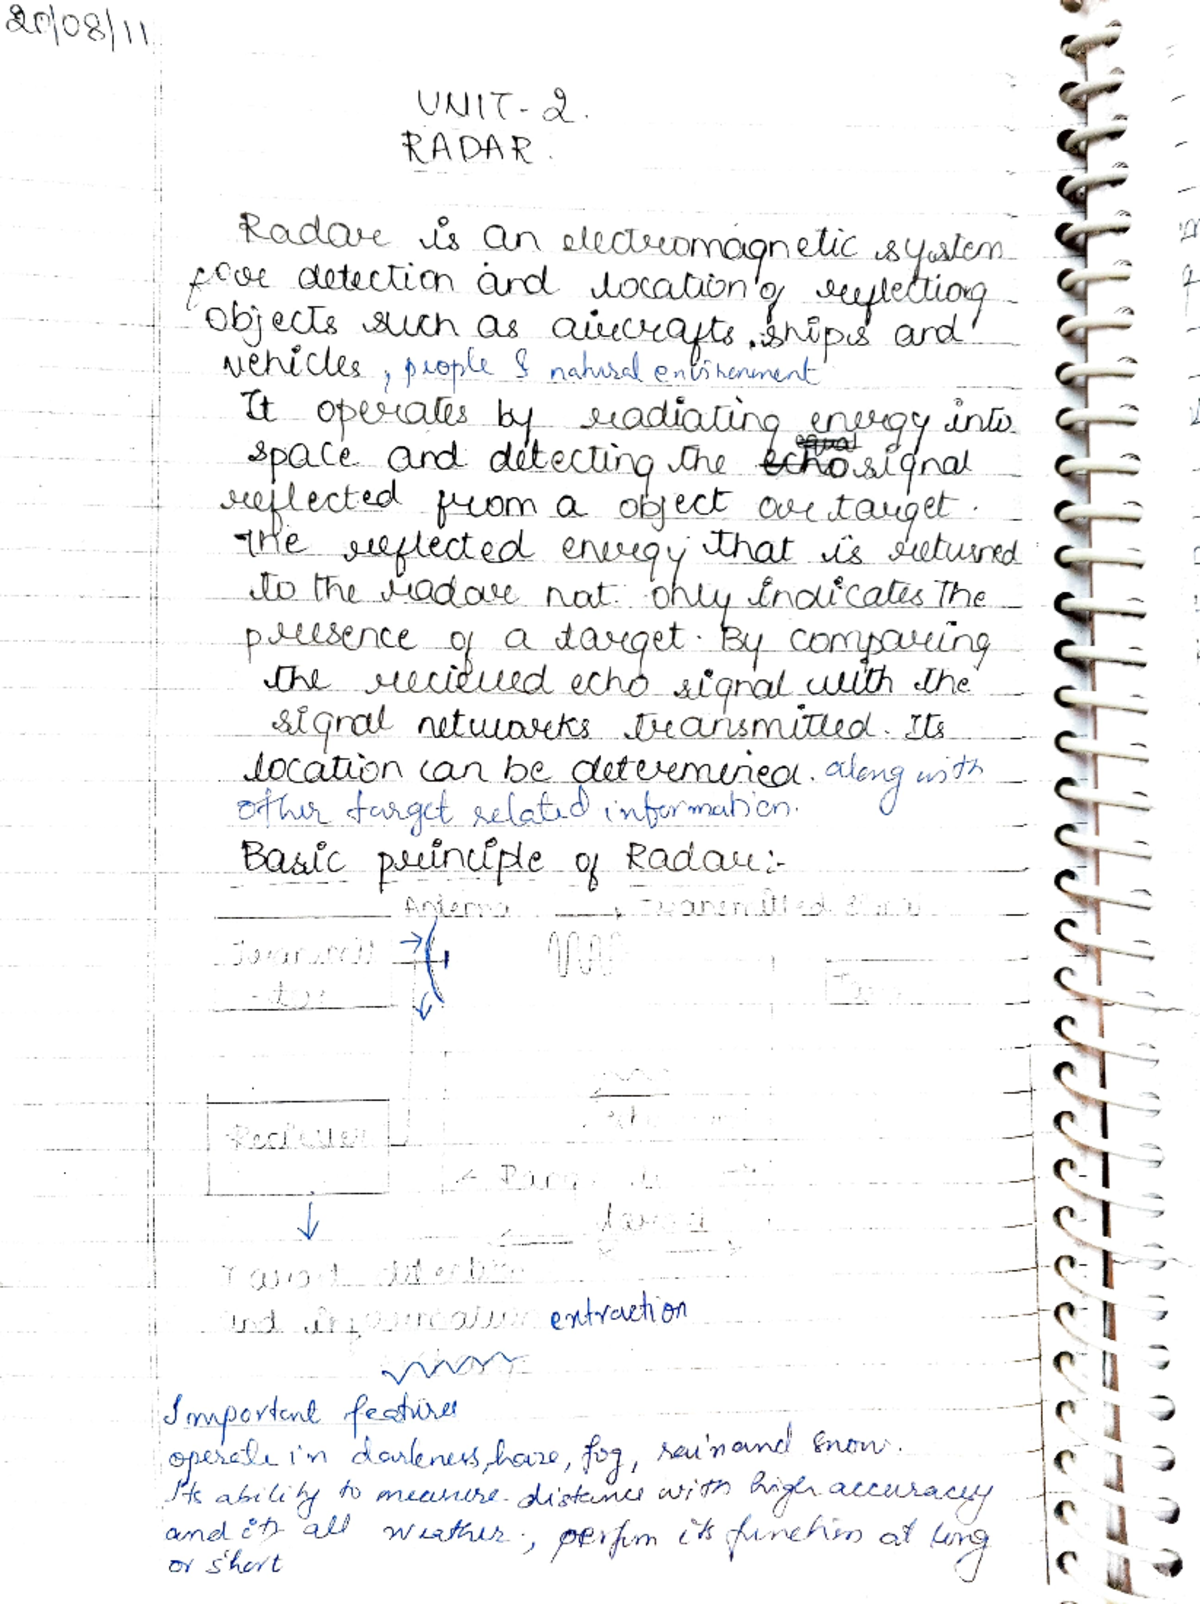 20/08/11
UNIT-2.
RADAR.
Radar is an electromagnetic system
for detection and location of reflecting
objects such as aircrafts, ships and
vehicles, people & natural environment
It operates by radiating energy into
space and detecting the echo signal
reflected from a object or target.
The reflected energy that is returned
to the radar not only indicates the
presence of a target. By comparing
the recieved echo signal with the
signal networks transmitted. Its
location can be determined. along with
other target related information.
Basic principle of Radar:-
Antenna Transmitted
Reciever
Target
entraction
Important features
operate in darkness, haze, fog, rain and snow.
Its ability to measure distance with high accuracy
and its all weather, perform its function at long
or short